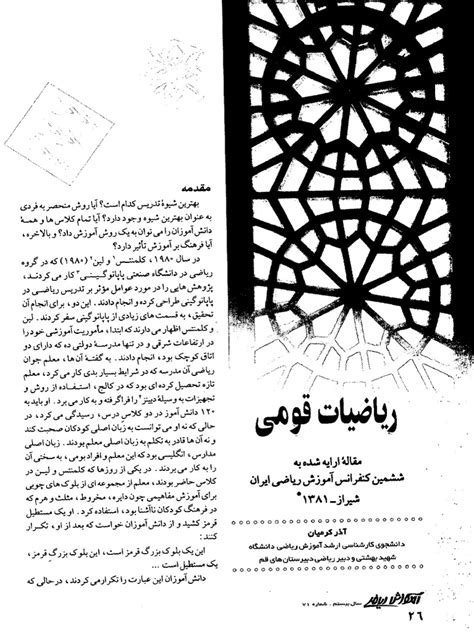 مقدمه
بهترین شیوهٔ تدریس کدام است؟ آیا روش منحصر به فردی
به عنوان بهترین شیوه وجود دارد؟ آیا تمام کلاس ها و همهٔ
دانش آموزان را می توان به یک روش آموزش داد؟ و بالاخره،
آیا فرهنگ بر آموزش تأثیر دارد؟
در سال ۱۹۸۰، کلمنتس و لین (۱۹۸۰) که در گروه
ریاضی در دانشگاه صنعتی پاپاتوگینی کار می کردند،
پژوهش هایی را در مورد عوامل مؤثر بر تدریس ریاضی در
پاپاتوگینی طراحی کرده و انجام دادند. این دو، برای انجام آن
تحقیق، به قسمت های زیادی از پاپاتوگینی سفر کردند. لین
و کلمنتس اظهار می دارند که ابتدا، مأموریت آموزشی خود را
در ارتفاعات شرقی و در تنها مدرسهٔ دولتی ده که دارای دو
اتاق کوچک بود، انجام دادند. به گفتهٔ آن ها، معلم جوان
ریاضی آن مدرسه که در شرایط بسیار بدی کار می کرد، معلم
تازه تحصیل کرده ای بود که در کالج، استفاده از روش و
تجهیزات به وسیلهٔ دینز را فراگرفته و به کار می برد. او باید به
۱۲۰ دانش آموز در دو کلاس درس، رسیدگی می کرد، در
حالی که نه او می توانست به زبان اصلی کودکان صحبت کند
و نه آن ها قادر به تکلم به زبان اصلی معلم بودند. زبان اصلی
مدارس، انگلیسی بود که این معلم و افراد بومی، به سختی آن
را به کار می بردند. در یکی از روزها که کلمنتس و لین در
کلاس حاضر بودند، معلم از مجموعه ای از بلوک های چوبی
برای آموزش مفاهیمی چون دایره، مخروط، مثلث و هرم که
در فرهنگ کودکان ناآشنا بود، استفاده کرد. او یک مستطیل
قرمز کشید و از دانش آموزان خواست که بعد از او، تکرار
کنند:
این یک بلوک بزرگ قرمز است، این یک بلوک بزرگ قرمز،
یک مستطیل است.
دانش آموزان این عبارت را تکرار می کردند، در حالی که
ریاضیات قومی
مقالهٔ ارایه شده به
ششمین کنفرانس آموزش ریاضی ایران
شیراز ـ ۱۳۸۱*
آذر کرمیان
دانشجوی کارشناسی ارشد آموزش ریاضی دانشگاه
شهید بهشتی و دبیر ریاضی دبیرستان های قم
سال بیستم . شماره ۷۱
۲۶